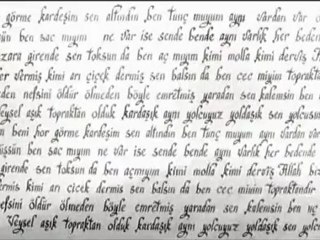 görme kardeşim sen altından ben tunç muyum aynı vardan var o
sün ben sac mıyım ne var ise sende bende aynı varlık her beden
zara girende sen toksun da ben aç mıyım kimi molla kimi derviş
vermiş kimi arı çiçek dermiş sen balsın da ben cec miyim toprakta
eden nefsini öldür ölmeden böyle emretmiş yaradan sen kalemsin ben
eysel aşık topraktan olduk kardaşık aynı yolcuyuz yoldaşık sen yolcusun
ı beni hor görme kardeşim sen altından ben tunç muyum aynı vardan
üşsün ben sac mıyım ne var ise sende bende aynı varlık her bedende
girende sen toksun da ben açmıyım kimi molla kimi derviş Allah bi
vermiş kimi arı çicek dermiş sen balsın da ben cec miyim topraktandır
nefsini öldür ölmeden böyle emretmiş yaradan sen kalemsin ben uç
Veysel aşık topraktan olduk kardaşık aynı yolcuyuz yoldaşık sen yo